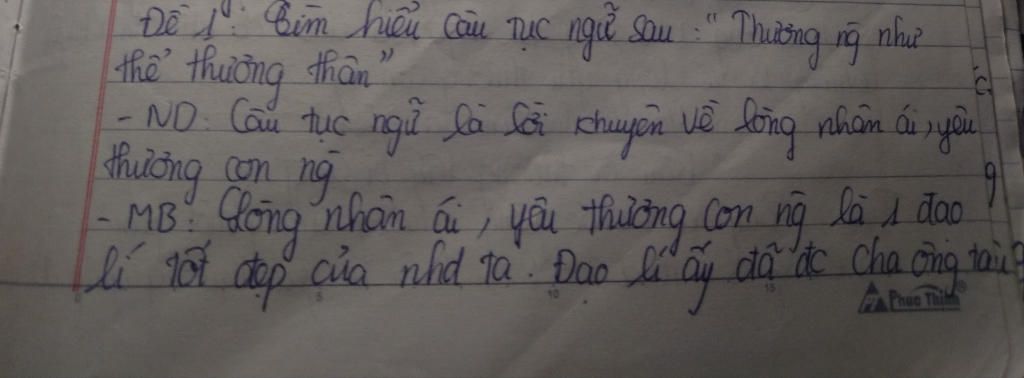 Đề 1: Tìm hiểu câu tục ngữ sau: "Thương ng như
thể thương thân"
- ND: Câu tục ngữ là lời khuyên về lòng nhân ái, yêu
thương con ng
- MB: Lòng nhân ái, yêu thương con ng là 1 đạo
lí tốt đẹp của nhd ta. Đạo lí ấy đã đc cha ông ta
Phuc Thinh